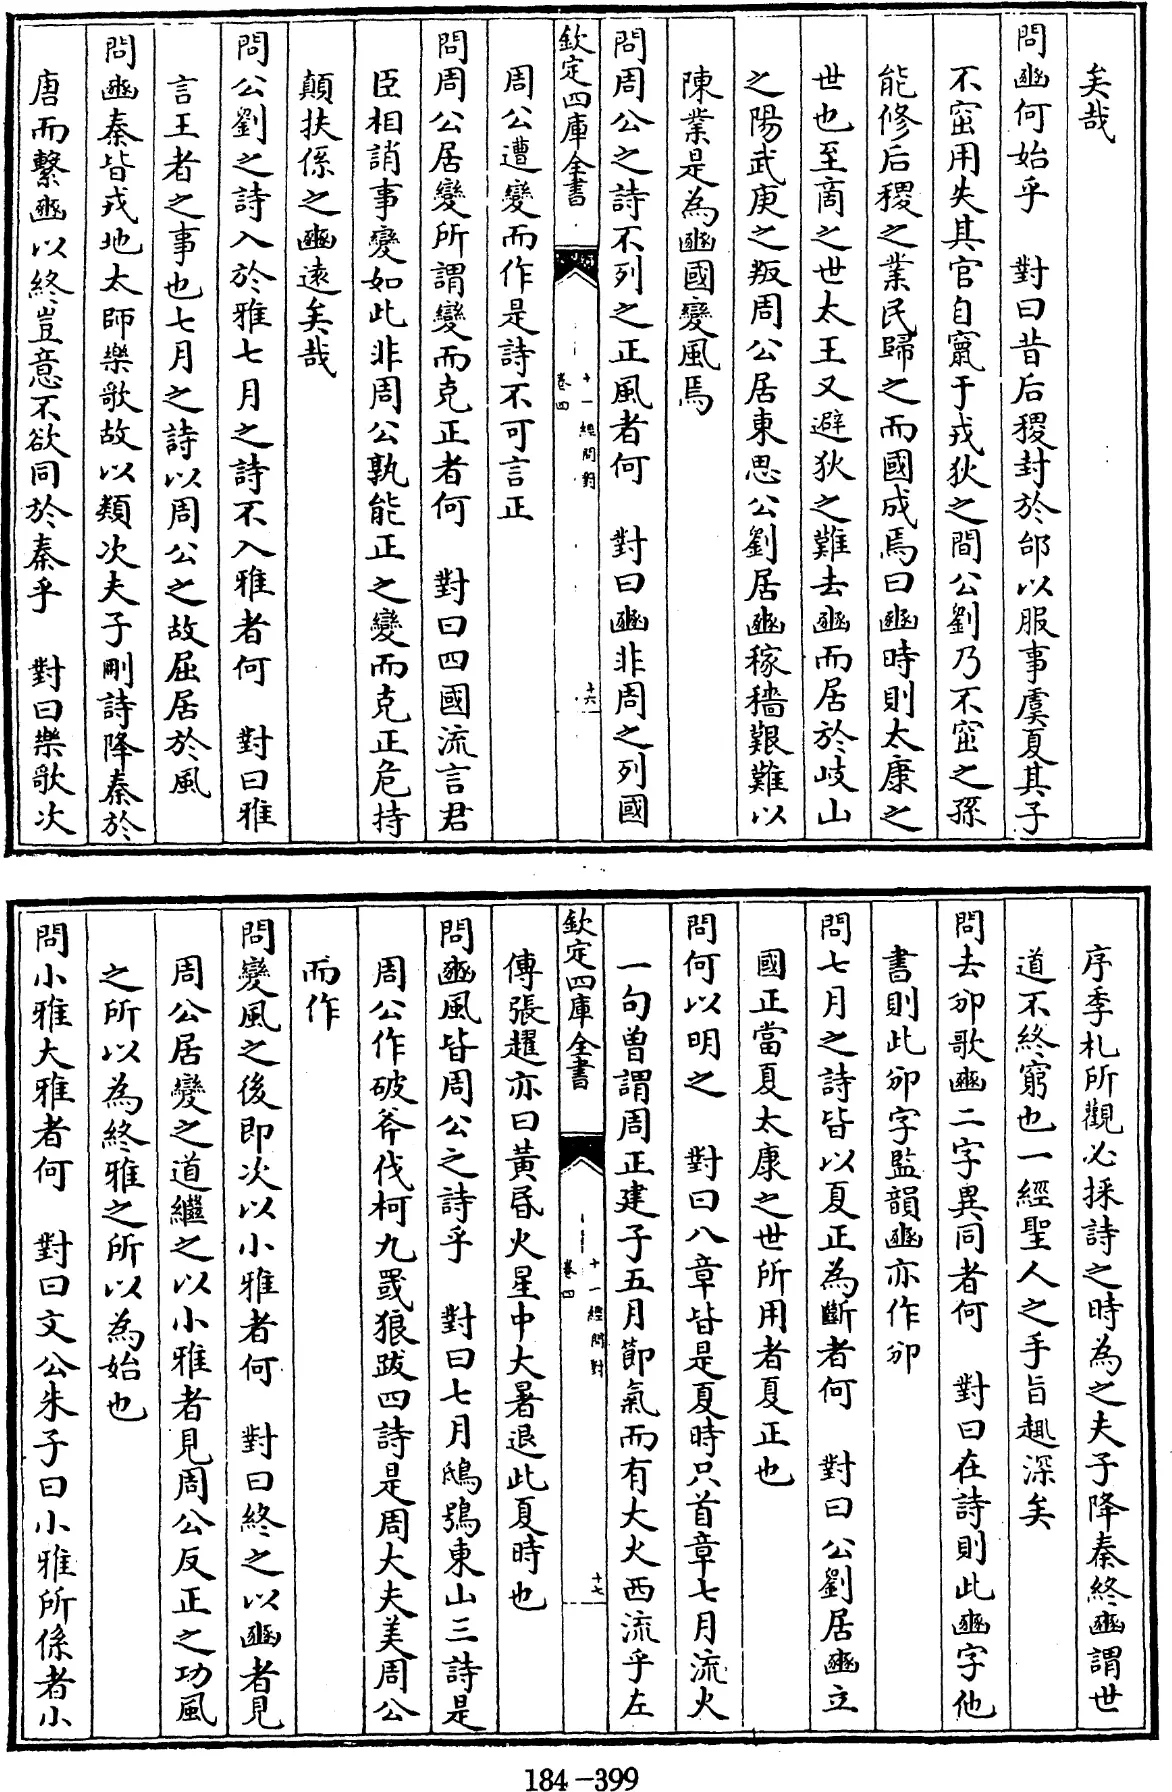 矣哉
問豳何始乎　對曰昔后稷封於邰以服事虞夏其子
不窋用失其官自竄于戎狄之間公劉乃不窋之孫
能修后稷之業民歸之而國成焉曰豳時則太康之
世也至商之世太王又避狄之難去豳而居於岐山
之陽武庚之叛周公居東思公劉居豳稼穡艱難以
陳業是為豳國變風焉
問周公之詩不列之正風者何　對曰豳非周之列國
欽定四庫全書
十一經問對
卷四
十六
周公遭變而作是詩不可言正
問周公居變所謂變而克正者何　對曰四國流言君
臣相誚事變如此非周公孰能正之變而克正危持
顛扶係之豳遠矣哉
問公劉之詩入於雅七月之詩不入雅者何　對曰雅
言王者之事也七月之詩以周公之故屈居於風
問豳秦皆戎地太師樂歌故以類次夫子刪詩降秦於
唐而繫豳以終豈意不欲同於秦乎　對曰樂歌次
序季札所觀必採詩之時為之夫子降秦終豳謂世
道不終窮也一經聖人之手旨趣深矣
問去邠歌豳二字異同者何　對曰在詩則此豳字他
書則此邠字監韻豳亦作邠
問七月之詩皆以夏正為斷者何　對曰公劉居豳立
國正當夏太康之世所用者夏正也
問何以明之　對曰八章皆是夏時只首章七月流火
一句曾謂周正建子五月節氣而有大火西流乎左
欽定四庫全書
十一經問對
卷四
十七
傳張趯亦曰黃昏火星中大暑退此夏時也
問豳風皆周公之詩乎　對曰七月鴟鴞東山三詩是
周公作破斧伐柯九罭狼跋四詩是周大夫美周公
而作
問變風之後即次以小雅者何　對曰終之以豳者見
周公居變之道繼之以小雅者見周公反正之功風
之所以為終雅之所以為始也
問小雅大雅者何　對曰文公朱子曰小雅所係者小
184-399